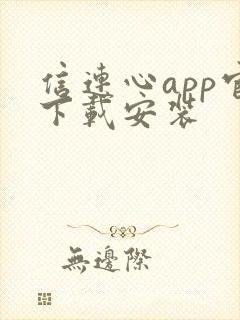 信連心app官
下載安装
無邊際